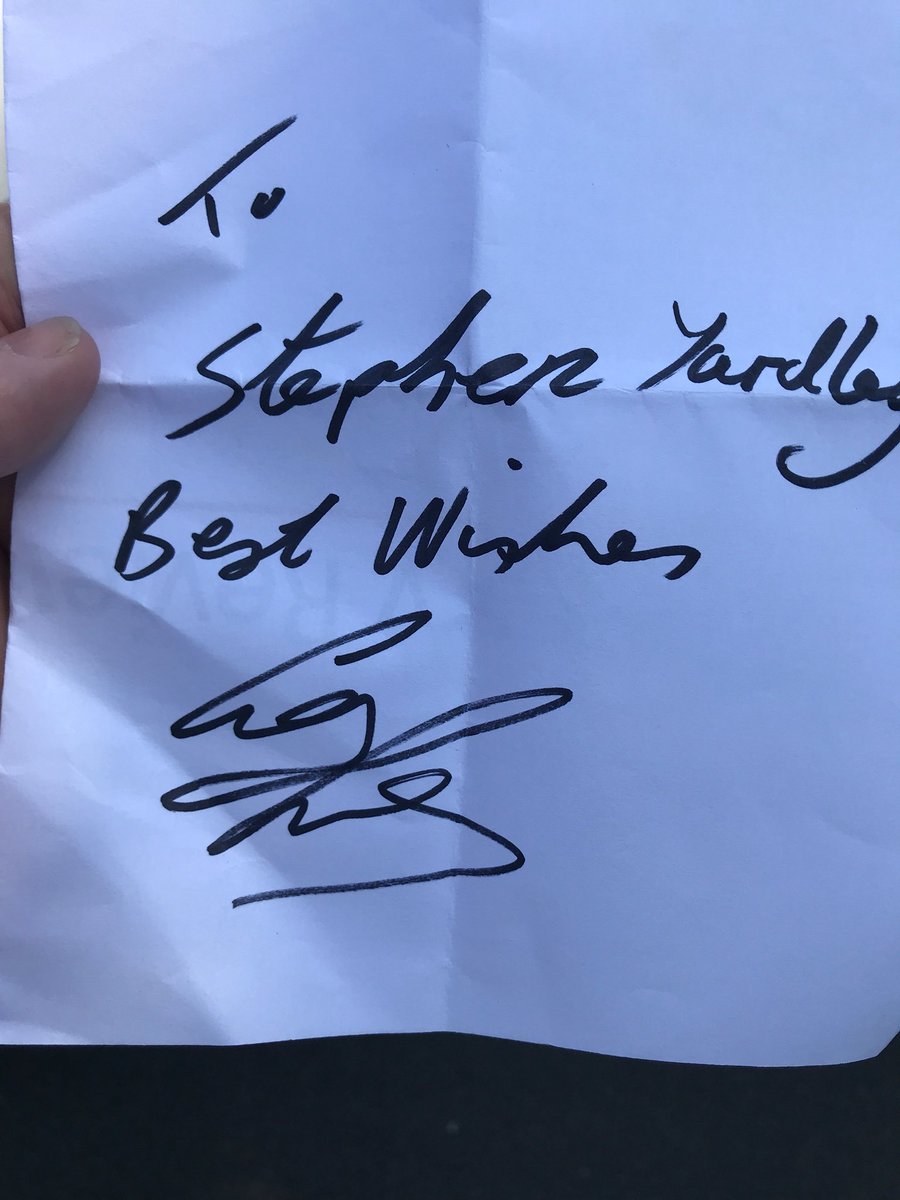 To
Stephen Yardley
Best Wishes